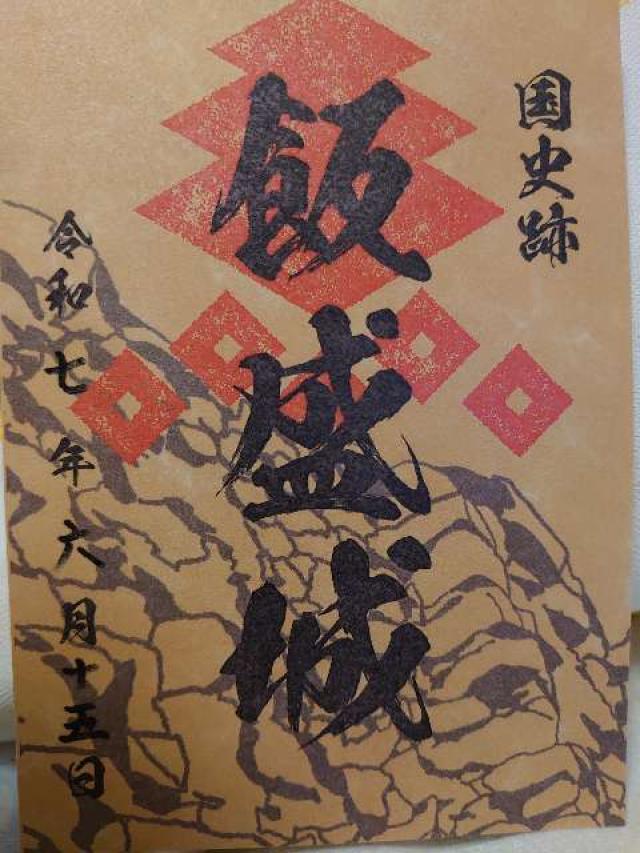 国史跡
飯盛城
令和七年六月十五日